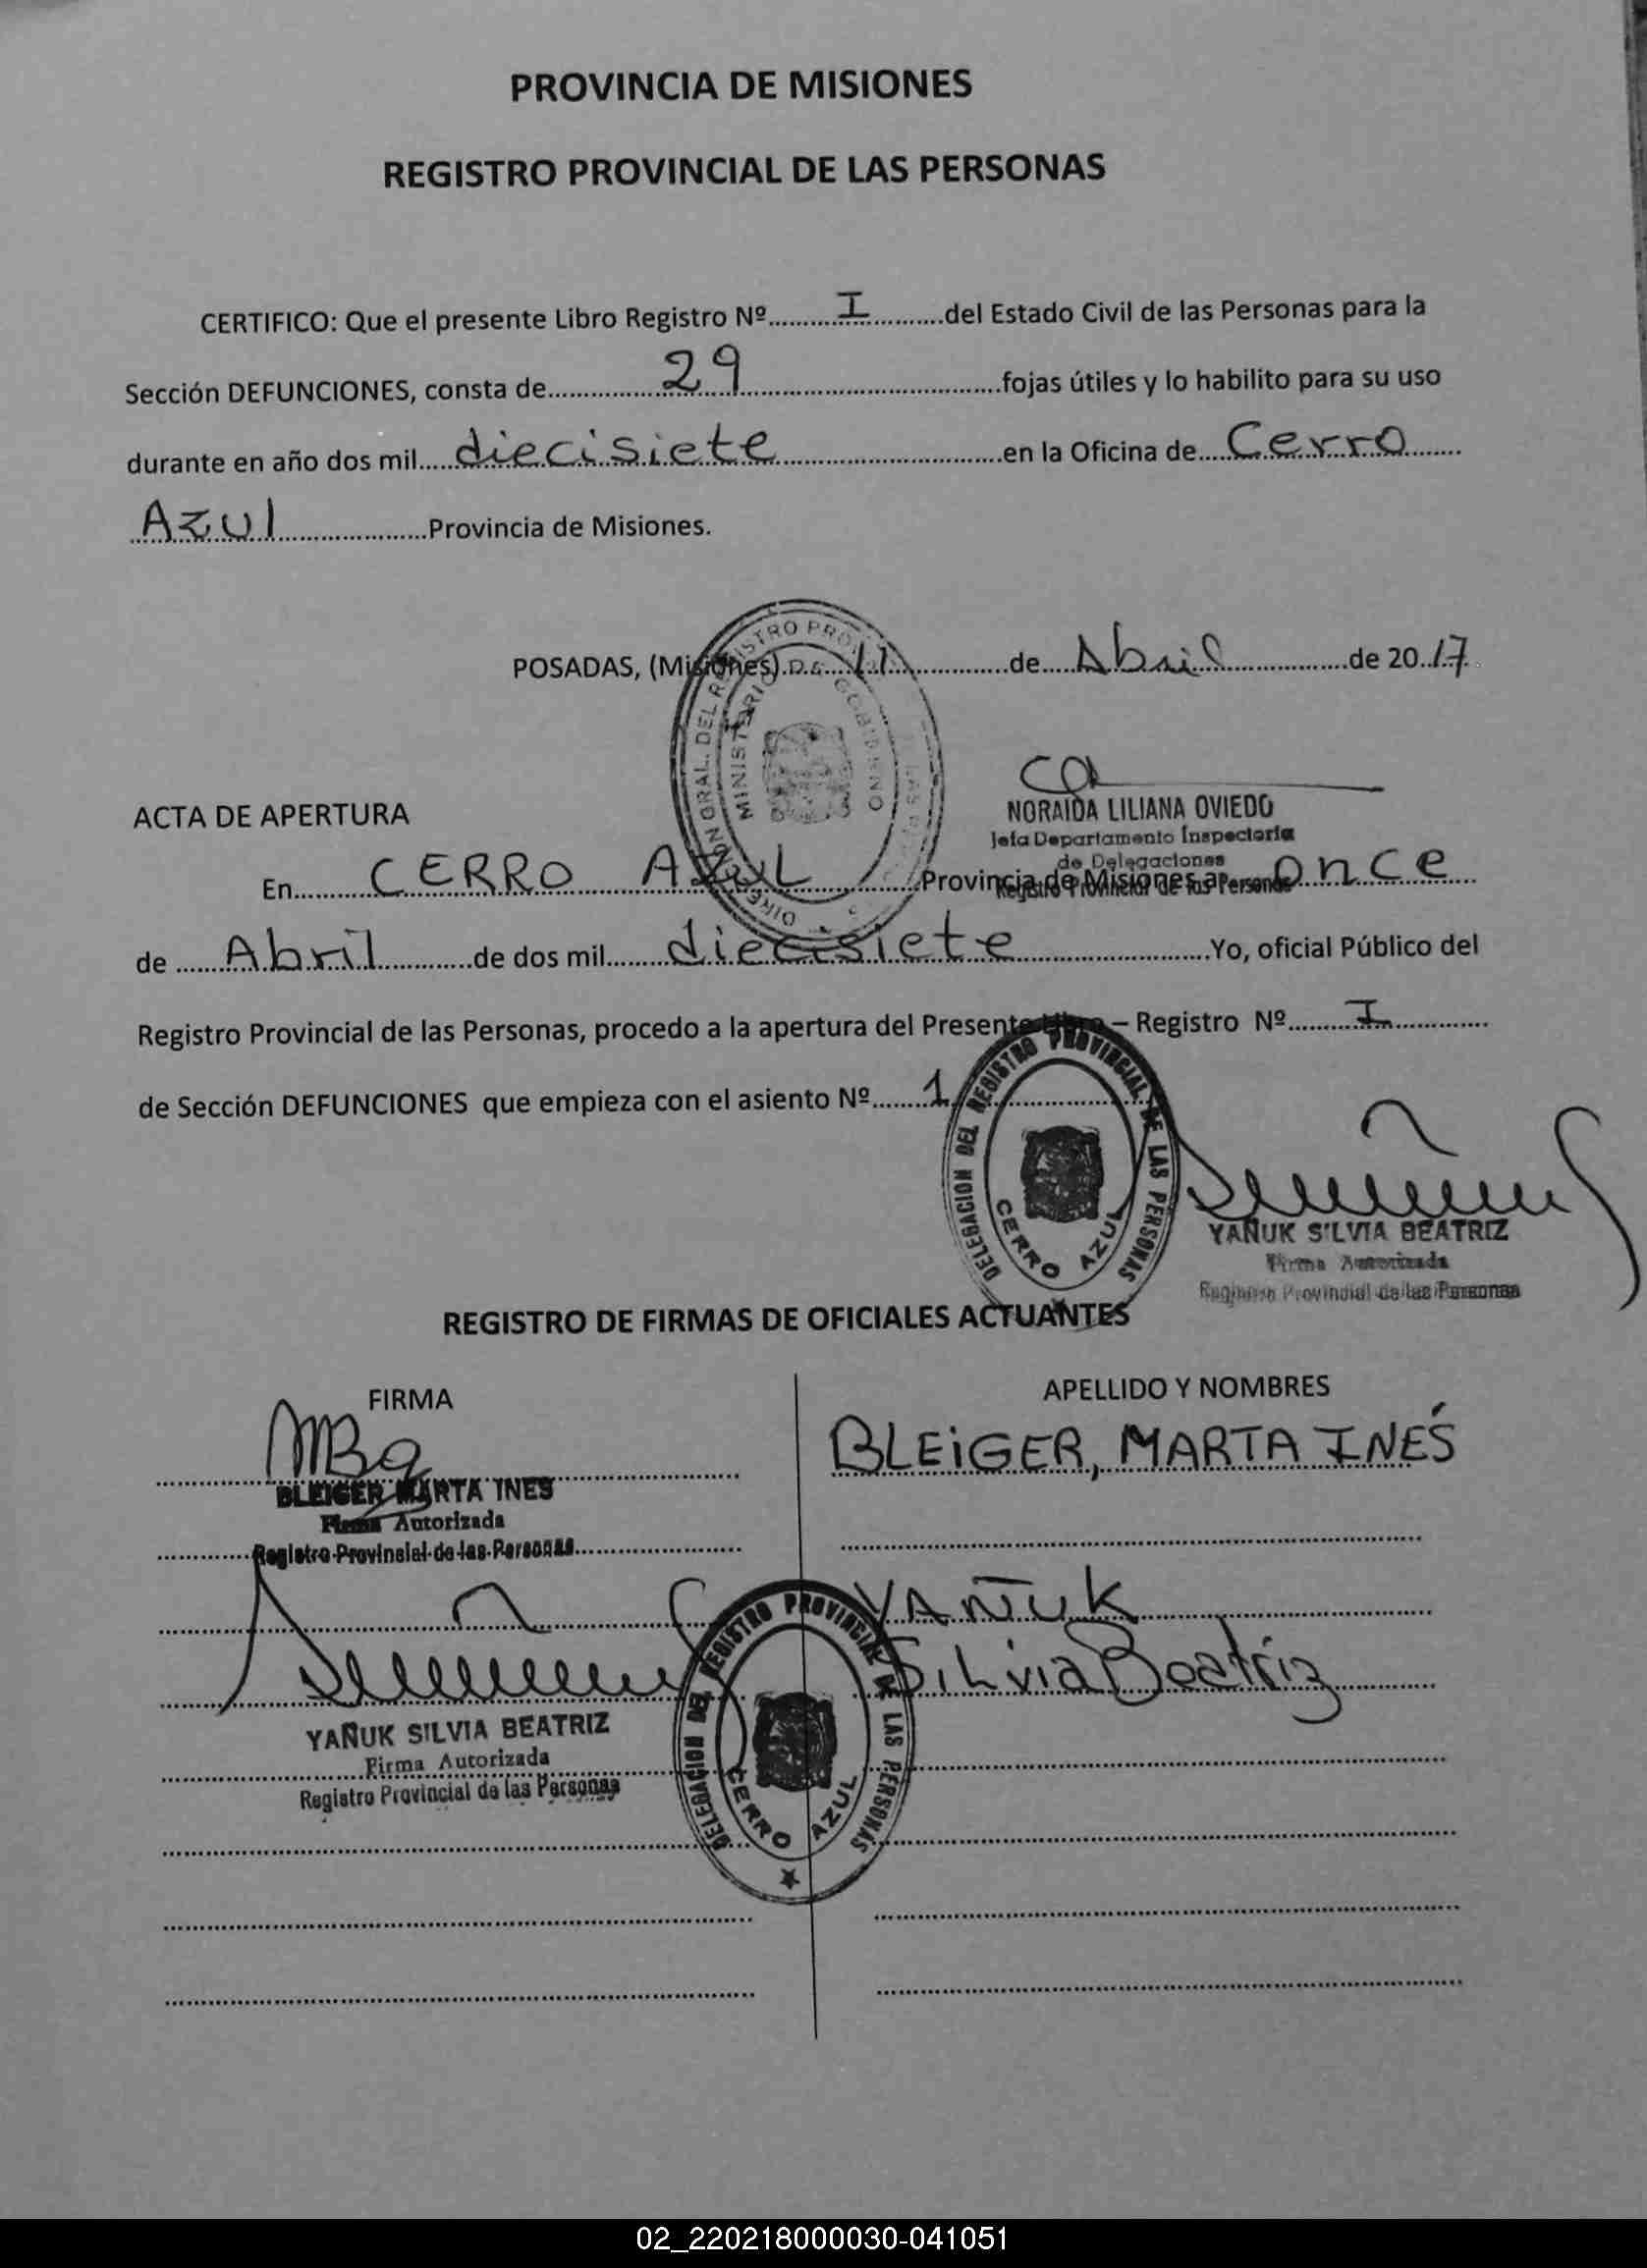 PROVINCIA DE MISIONES
REGISTRO PROVINCIAL DE LAS PERSONAS
CERTIFICO: Que el presente Libro Registro Nº I del Estado Civil de las Personas para la
Sección DEFUNCIONES, consta de 29 fojas útiles y lo habilito para su uso
durante en año dos mil diecisiete en la Oficina de Cerro
Azul Provincia de Misiones.
POSADAS, (Misiones) 11 de Abril de 2017
NORAIDA LILIANA OVIEDO
Jefa Departamento Inspectoria
de Delegaciones
Registro Provincial de las Personas
ACTA DE APERTURA
En CERRO AZUL Provincia de Misiones a once
de Abril de dos mil diecisiete Yo, oficial Público del
Registro Provincial de las Personas, procedo a la apertura del Presente Libro – Registro Nº I
de Sección DEFUNCIONES que empieza con el asiento Nº 1
DELEGACION DEL REGISTRO PROVINCIAL DE LAS PERSONAS
CERRO AZUL
YAÑUK SILVIA BEATRIZ
Firma Autorizada
Registro Provincial de las Personas
REGISTRO DE FIRMAS DE OFICIALES ACTUANTES
FIRMA APELLIDO Y NOMBRES
BLEIGER, MARTA INÉS
BLEIGER MARTA INES
Firma Autorizada
Registro Provincial de las Personas
YAÑUK
Silvia Beatriz
YAÑUK SILVIA BEATRIZ
Firma Autorizada
Registro Provincial de las Personas
DELEGACION DEL REGISTRO PROVINCIAL DE LAS PERSONAS
CERRO AZUL
02_220218000030-041051